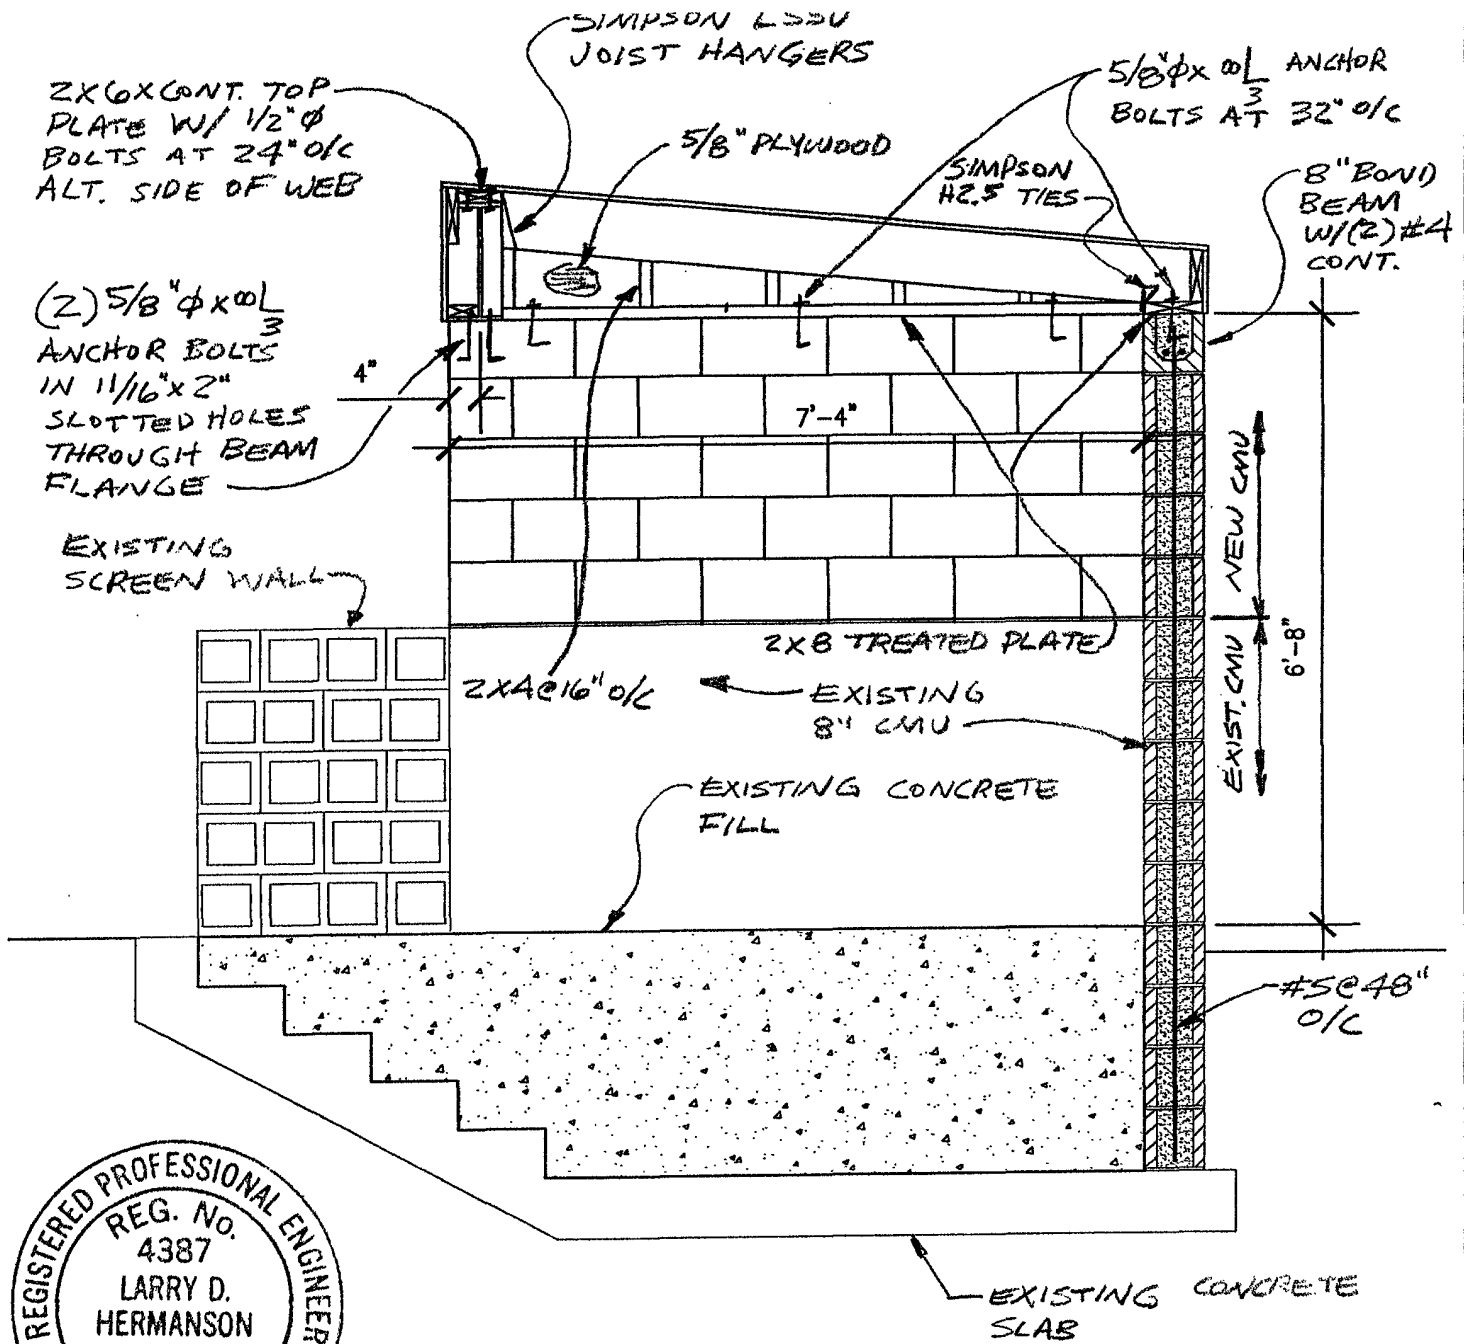 SIMPSON LSSU
JOIST HANGERS
2X6XCONT. TOP
PLATE W/ 1/2"Ø
BOLTS AT 24" O/C
ALT. SIDE OF WEB
5/8" PLYWOOD
5/8"Øx 8L3 ANCHOR
BOLTS AT 32" O/C
SIMPSON
H2.5 TIES
8" BOND
BEAM
W/(2)#4
CONT.
(2) 5/8"Øx 8L3
ANCHOR BOLTS
IN 11/16"x2"
SLOTTED HOLES
THROUGH BEAM
FLANGE
4"
7'-4"
NEW CMU
EXISTING
SCREEN WALL
2X8 TREATED PLATE
2X4@16" O/C
EXISTING
8" CMU
EXIST. CMU
6'-8"
EXISTING CONCRETE
FILL
#5@48"
O/C
REGISTERED PROFESSIONAL ENGINEER
REG. No.
4387
LARRY D.
HERMANSON
EXISTING CONCRETE
SLAB